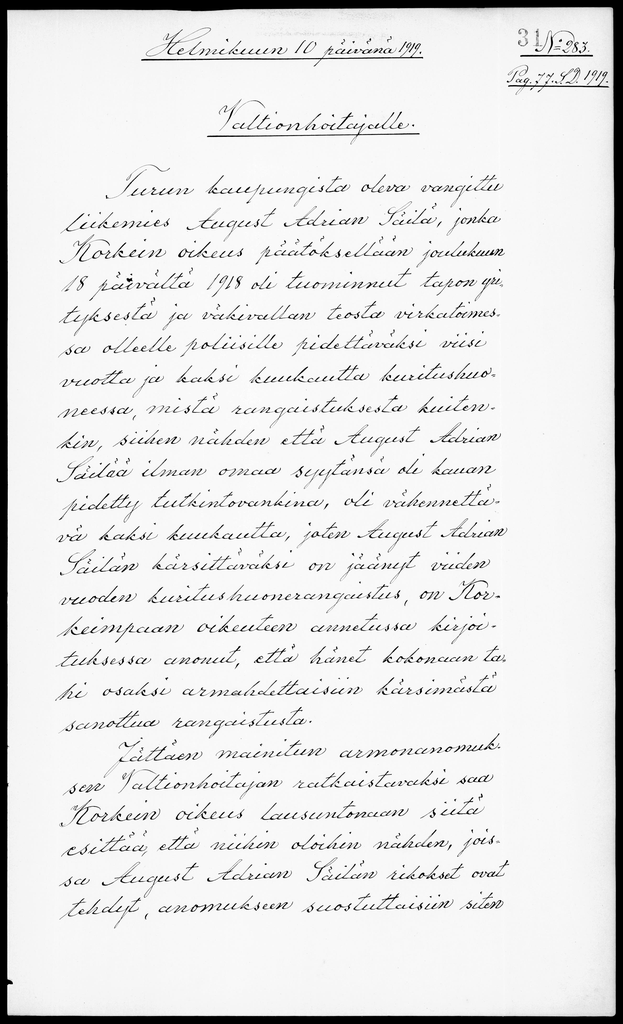 Helmikuun 10 päivänä 1919.
31
No 283.
Pag. 77. S.D. 1919.
Valtionhoitajalle.
Turun kaupungista oleva vangittu
liikemies August Adrian Säilä, jonka
Korkein oikeus päätöksellään joulukuun
18 päivältä 1918 oli tuominnut tapon yri-
tyksestä ja väkivallan teosta virkatoimes-
sa olleelle poliisille pidettäväksi viisi
vuotta ja kaksi kuukautta kuritushuo-
neessa, mistä rangaistuksesta kuiten-
kin, siihen nähden että August Adrian
Säilää ilman omaa syytänsä oli kauan
pidetty tutkintovankina, oli vähennettä-
vä kaksi kuukautta, joten August Adrian
Säilän kärsittäväksi on jäänyt viiden
vuoden kuritushuonerangaistus, on Kor-
keimpaan oikeuteen annetussa kirjoi-
tuksessa anonut, että hänet kokonaan ta-
hi osaksi armahdettaisiin kärsimästä
sanottua rangaistusta.
Jättäen mainitun armonanomuk-
sen Valtionhoitajan ratkaistavaksi saa
Korkein oikeus lausuntonaan siitä
esittää, että niihin oloihin nähden, jois-
sa August Adrian Säilän rikokset ovat
tehdyt, anomukseen suostuttaisiin siten